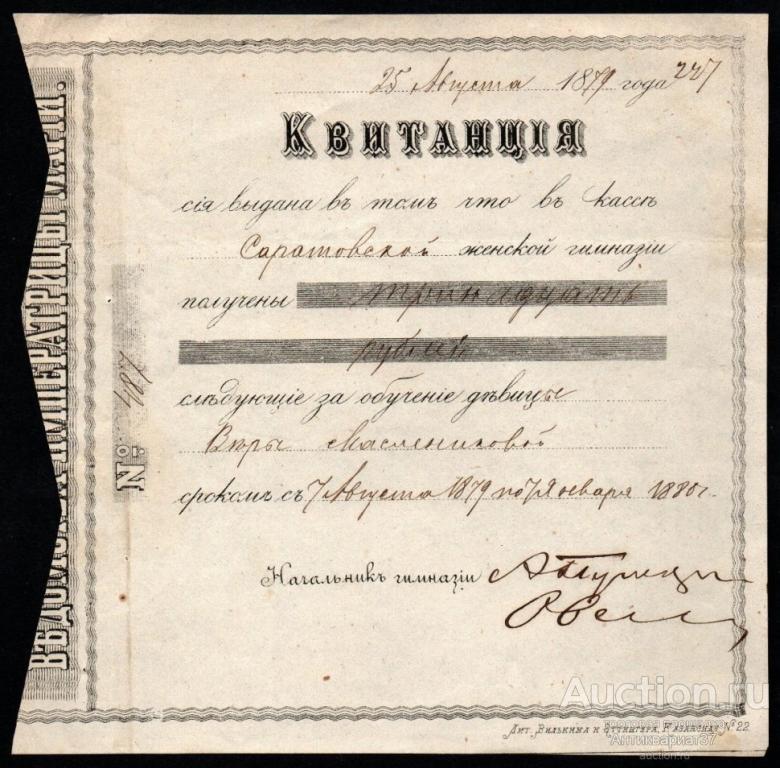 25 Августа 1879 года 227
Квитанція
сія выдана въ томъ что въ кассѣ
Саратовской женской гимназіи
получены тринадцать
рублей
слѣдующіе за обученіе дѣвицы
Вѣры Маслениковой
срокомъ съ 7 Августа 1879 по 7 Января 1880 г.
Начальникъ гимназіи
№ 487
ВѢДОМСТВА ИМПЕРАТРИЦЫ МАРІИ.
Лит. Вилькина и Эттингера, Казанская № 22
Auction.ru
Антиквариат37
auction.ru